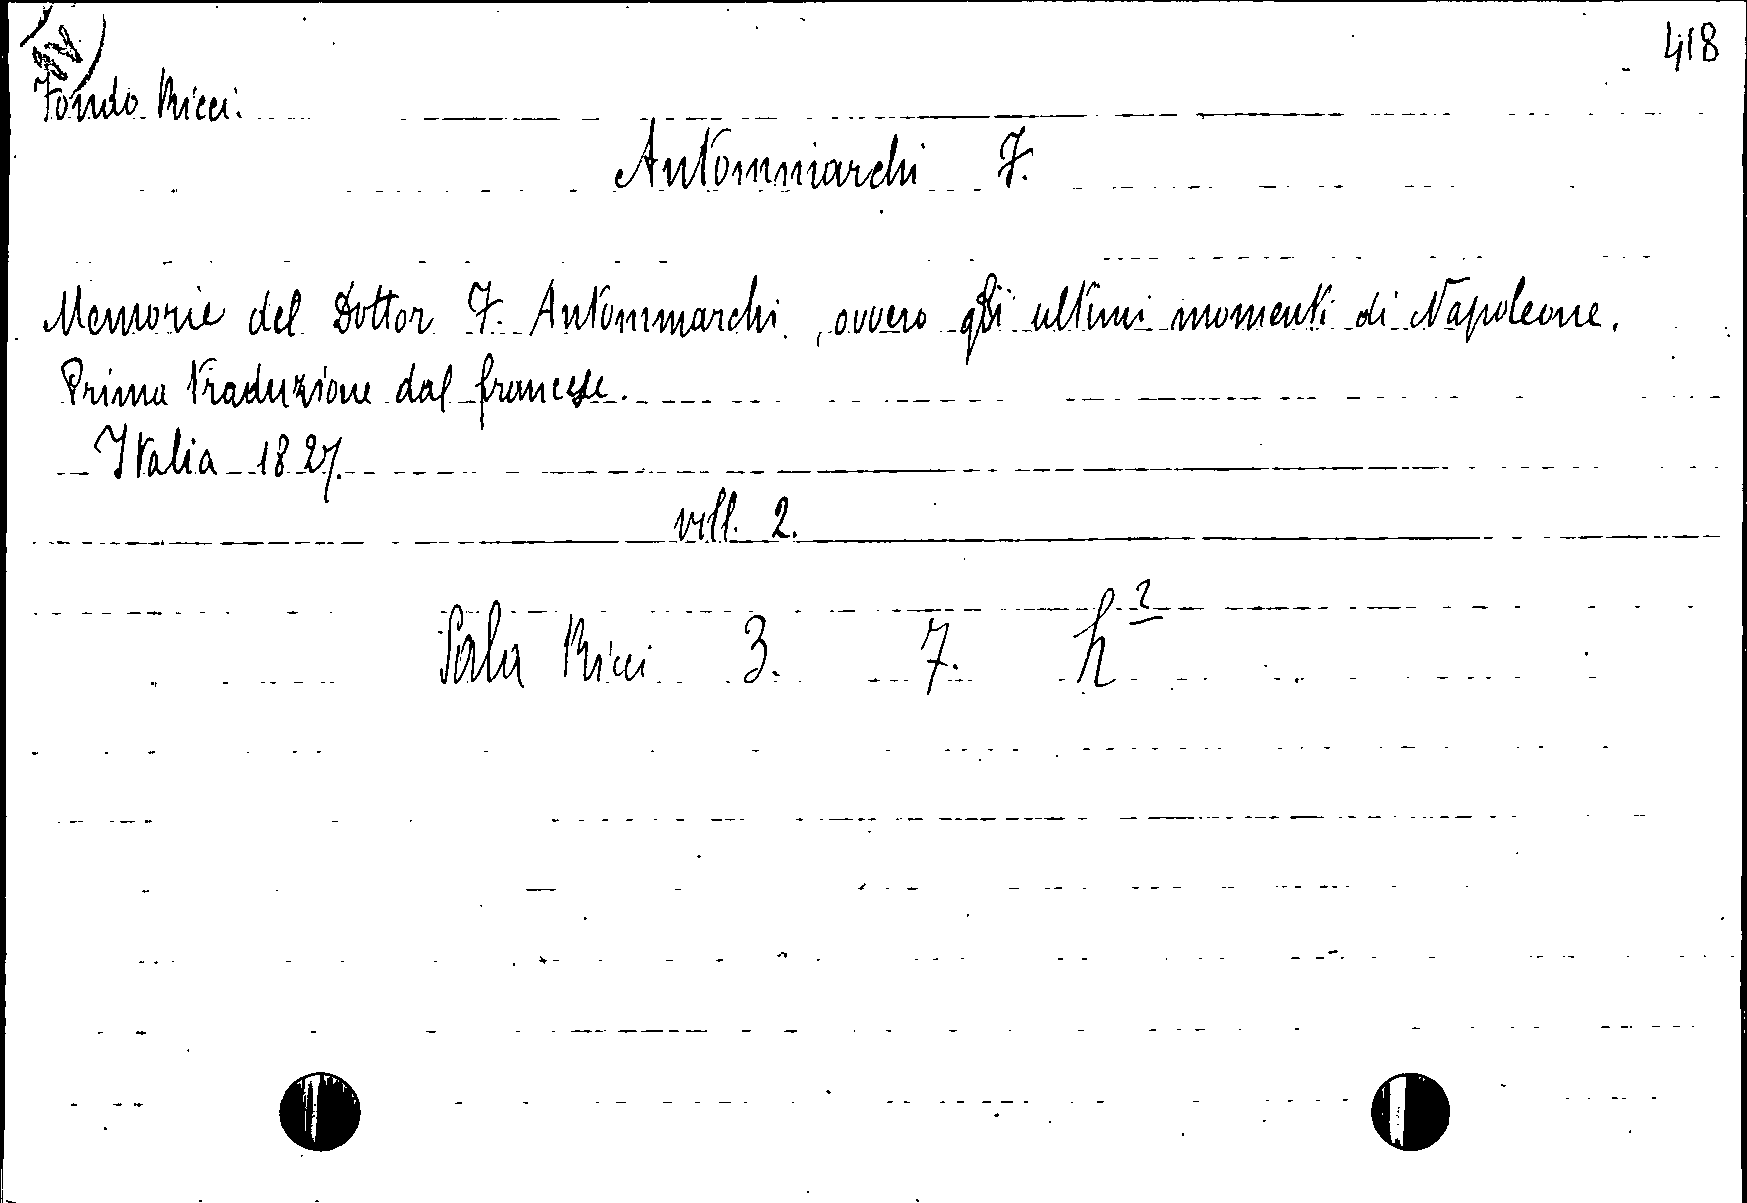 418
Fondo Ricci.
Antommarchi F.
Memorie del Dottor F. Antommarchi, ovvero gli ultimi momenti di Napoleone.
Prima traduzione dal francese.
Italia 1827.
voll. 2.
Sala Ricci 3. 7. h²